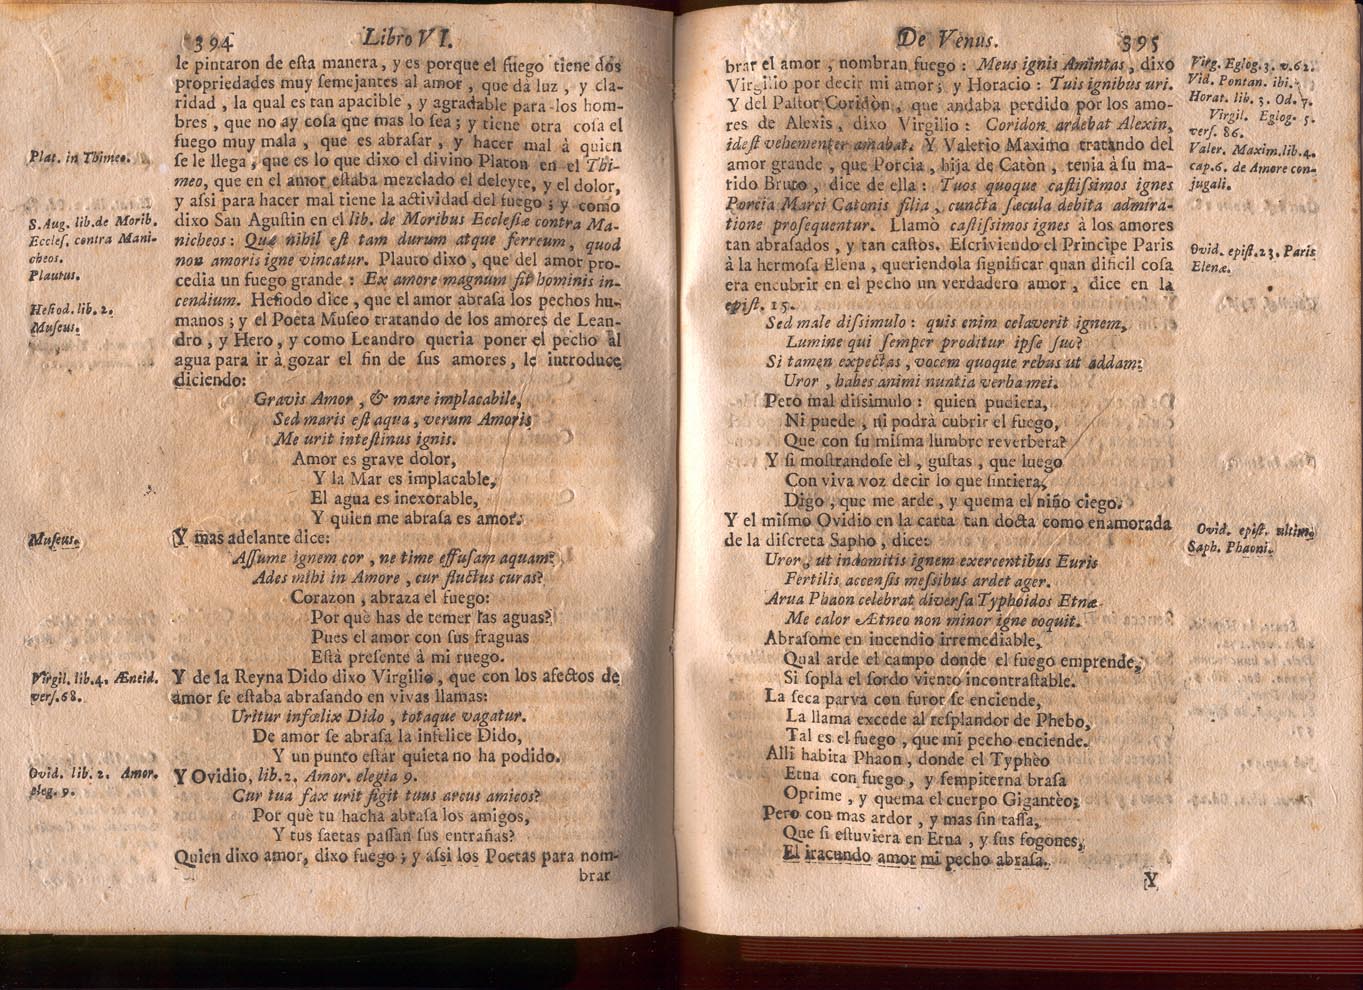 394 Libro VI.
le pintaron de eſta manera, y es porque el fuego tiene dos
propriedades muy ſemejantes al amor, que dà luz, y cla-
ridad, la qual es tan apacible, y agradable para los hom-
bres, que no ay coſa que mas lo ſea; y tiene otra coſa el
fuego muy mala, que es abraſar, y hacer mal à quien
ſe le llega, que es lo que dixo el divino Platon en el Thi-
meo, que en el amor eſtaba mezclado el deleyte, y el dolor,
y aſsi para hacer mal tiene la actividad del fuego; y como
dixo San Aguſtin en el lib. de Moribus Eccleſiæ contra Ma-
nicheos: Quæ nihil eſt tam durum atque ferreum, quod
non amoris igne vincatur. Plauto dixo, que del amor pro-
cedia un fuego grande: Ex amore magnum fit hominis in-
cendium. Heſiodo dice, que el amor abraſa los pechos hu-
manos; y el Poeta Muſeo tratando de los amores de Lean-
dro, y Hero, y como Leandro queria poner el pecho al
agua para ir à gozar el fin de ſus amores, le introduce
diciendo:
Gravis Amor, & mare implacabile,
Sed maris eſt aqua, verum Amoris
Me urit inteſtinus ignis.
Amor es grave dolor,
Y la Mar es implacable,
El agua es inexorable,
Y quien me abraſa es amor.
Y mas adelante dice:
Aſſume ignem cor, ne time effuſam aquam?
Ades mihi in Amore, cur fluctus curas?
Corazon, abraza el fuego:
Por què has de temer las aguas?
Pues el amor con ſus fraguas
Eſtà preſente à mi ruego.
Y de la Reyna Dido dixo Virgilio, que con los afectos de
amor ſe eſtaba abraſando en vivas llamas:
Uritur infœlix Dido, totaque vagatur.
De amor ſe abraſa la infelice Dido,
Y un punto eſtar quieta no ha podido.
Y Ovidio, lib.2. Amor. elegia 9.
Cur tua fax urit figit tuus arcus amicos?
Por què tu hacha abraſa los amigos,
Y tus ſaetas paſſan ſus entrañas?
Quien dixo amor, dixo fuego; y aſsi los Poetas para nom-
brar
Plat. in Thimeo.
S. Aug. lib. de Morib.
Eccleſ. contra Mani-
cheos.
Plautus.
Heſiod. lib. 2.
Muſeus.
Muſeus.
Virgil. lib.4. Æneid.
verſ.68.
Ovid. lib. 2. Amor.
eleg. 9.
De Venus. 395
brar el amor, nombran fuego: Meus ignis Amintas, dixo
Virgilio por decir mi amor; y Horacio: Tuis ignibus uri.
Y del Paſtor Coridòn, que andaba perdido por los amo-
res de Alexis, dixo Virgilio: Coridon ardebat Alexin,
ideſt vehementer amabat. Y Valerio Maximo tratando del
amor grande, que Porcia, hija de Catòn, tenia à ſu ma-
rido Bruto, dice de ella: Tuos quoque caſtiſsimos ignes
Porcia Marci Catonis filia, cuncta ſæcula debita admira-
tione proſequentur. Llamò caſtiſsimos ignes à los amores
tan abraſados, y tan caſtos. Eſcriviendo el Principe Paris
à la hermoſa Elena, queriendola ſignificar quan dificil coſa
era encubrir en el pecho un verdadero amor, dice en la
epiſt. 15.
Sed male diſsimulo: quis enim celaverit ignem,
Lumine qui ſemper proditur ipſe ſuo?
Si tamen expectas, vocem quoque rebus ut addam:
Uror, habes animi nuntia verba mei.
Pero mal diſsimulo: quien pudiera,
Ni puede, ni podrà cubrir el fuego,
Que con ſu miſma lumbre reverbera?
Y ſi moſtrandoſe èl, guſtas, que luego
Con viva voz decir lo que ſintiera,
Digo, que me arde, y quema el niño ciego.
Y el miſmo Ovidio en la carta tan docta como enamorada
de la diſcreta Sapho, dice:
Uror, ut indomitis ignem exercentibus Euris
Fertilis accenſis meſsibus ardet ager.
Arua Phaon celebrat diverſa Typhoidos Etnæ
Me calor Ætneo non minor igne coquit.
Abraſome en incendio irremediable,
Qual arde el campo donde el fuego emprende,
Si ſopla el ſordo viento incontraſtable.
La ſeca parva con furor ſe enciende,
La llama excede al reſplandor de Phebo,
Tal es el fuego, que mi pecho enciende.
Alli habita Phaon, donde el Typhèo
Etna con fuego, y ſempiterna braſa
Oprime, y quema el cuerpo Gigantèo;
Pero con mas ardor, y mas ſin taſſa,
Que ſi eſtuviera en Etna, y ſus fogones,
El iracundo amor mi pecho abraſa.
Y
Virg. Eglog. 3. v.62.
Vid. Pontan. ibi.
Horat. lib. 3. Od. 7.
Virgil. Eglog. 5.
verſ. 86.
Valer. Maxim. lib.4.
cap.6. de Amore con-
jugali.
Ovid. epiſt.23. Paris
Elenæ.
Ovid. epiſt. ultim.
Saph. Phaoni.